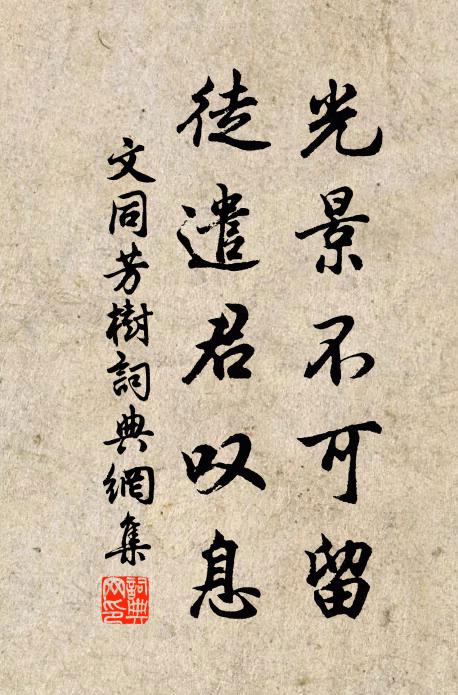 光景不可留
徒遣君叹息
文同芳樹詞典網集
詞典網印